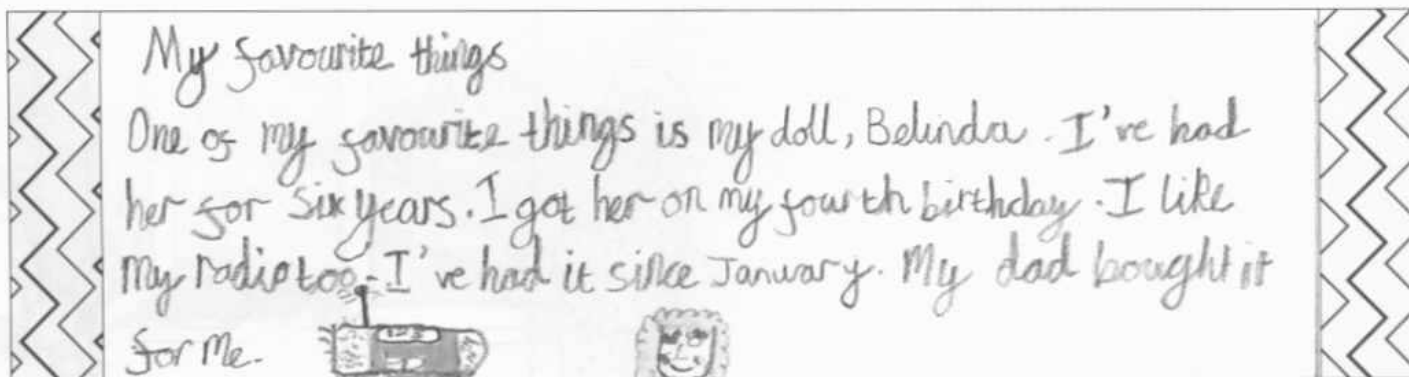 My favourite things
One of my favourite things is my doll, Belinda. I've had
her for six years. I got her on my fourth birthday. I like
my radio too. I've had it since January. My dad bought it
for me.